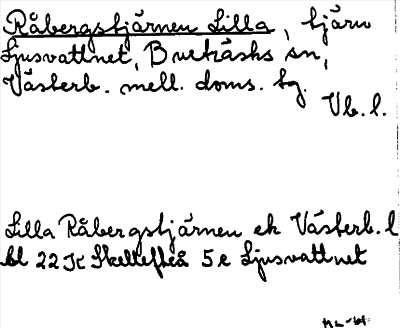 Råbergstjärnen Lilla, tjärn
Ljusvattnet, Bureträsks sn,
Västerb. mell. doms. tg.
Vb. l.
Lilla Råbergstjärnen ek Västerb. l
bl 22 J Skellefteå 5 e Ljusvattnet